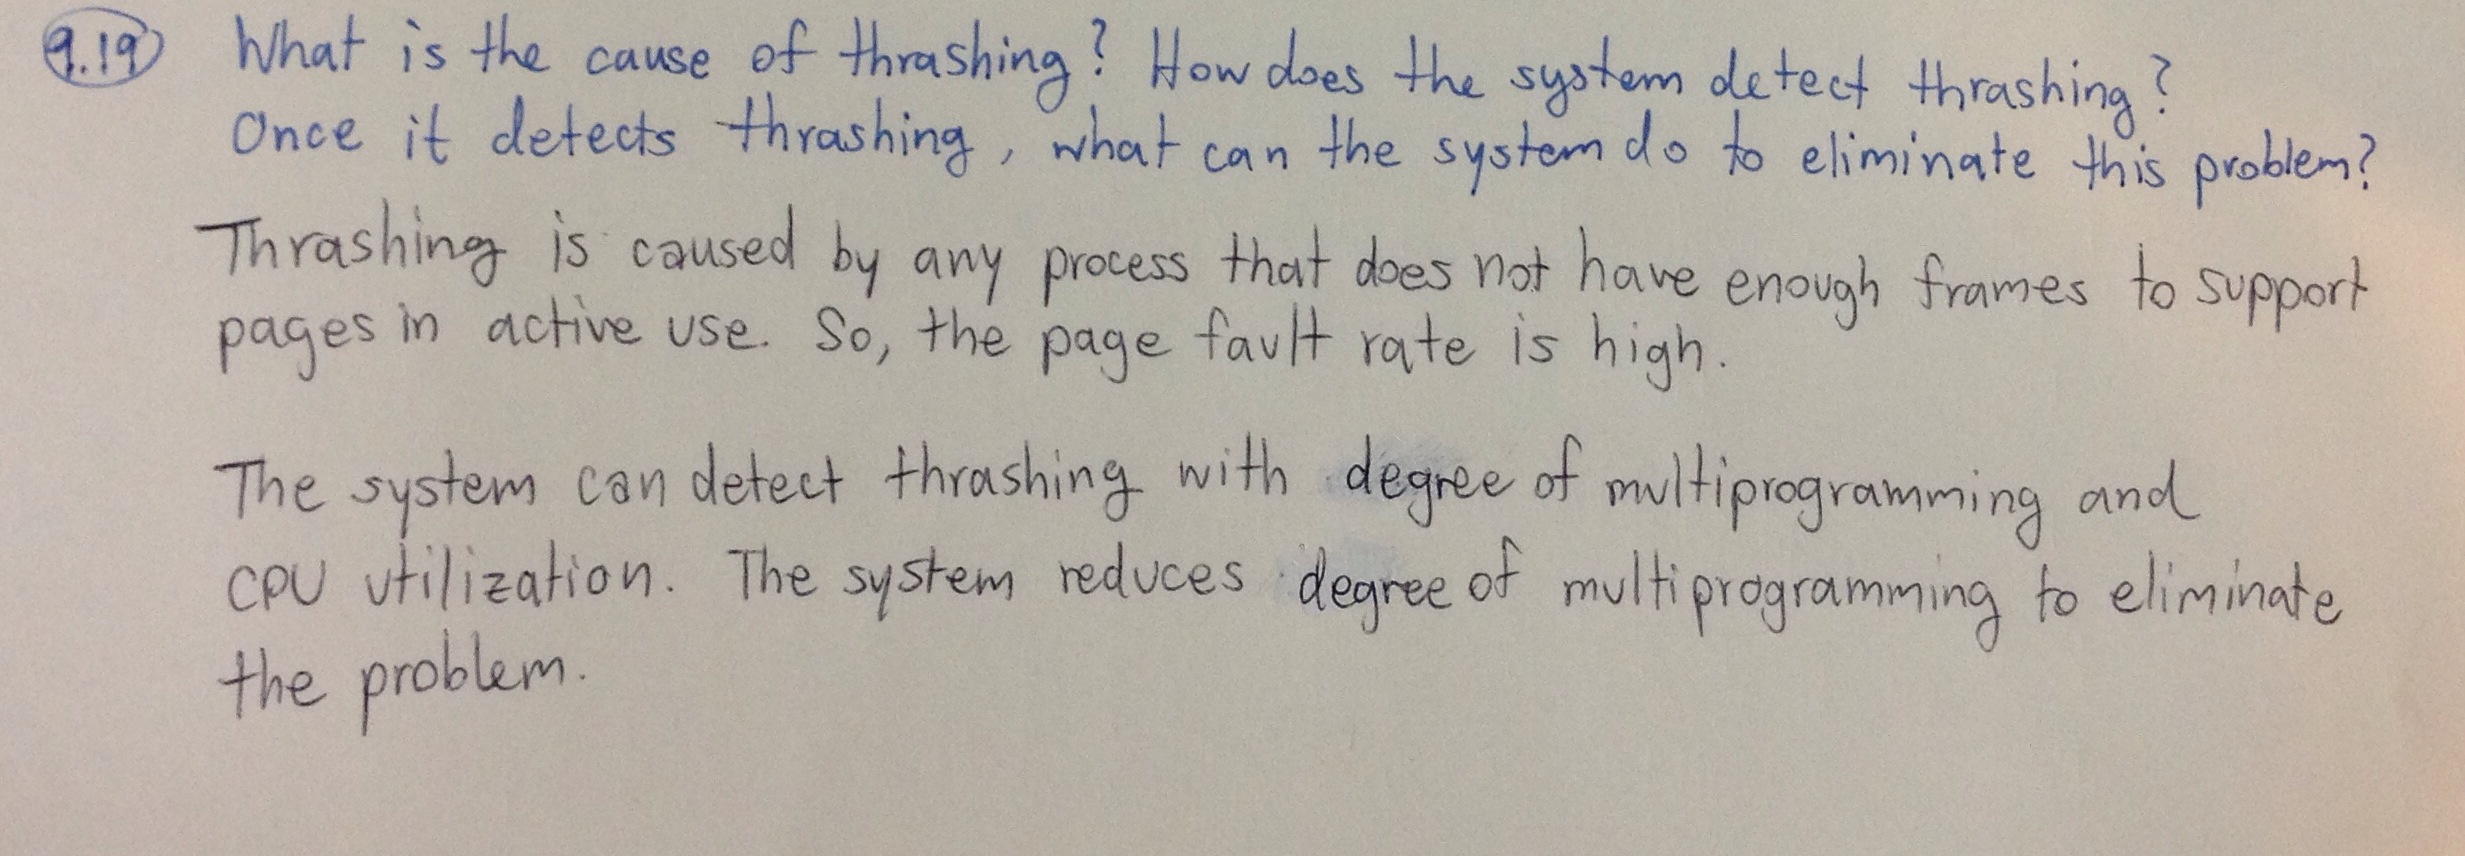 9.19 What is the cause of thrashing? How does the system detect thrashing?
Once it detects thrashing, what can the system do to eliminate this problem?
Thrashing is caused by any process that does not have enough frames to support
pages in active use. So, the page fault rate is high.
The system can detect thrashing with degree of multiprogramming and
CPU utilization. The system reduces degree of multiprogramming to eliminate
the problem.